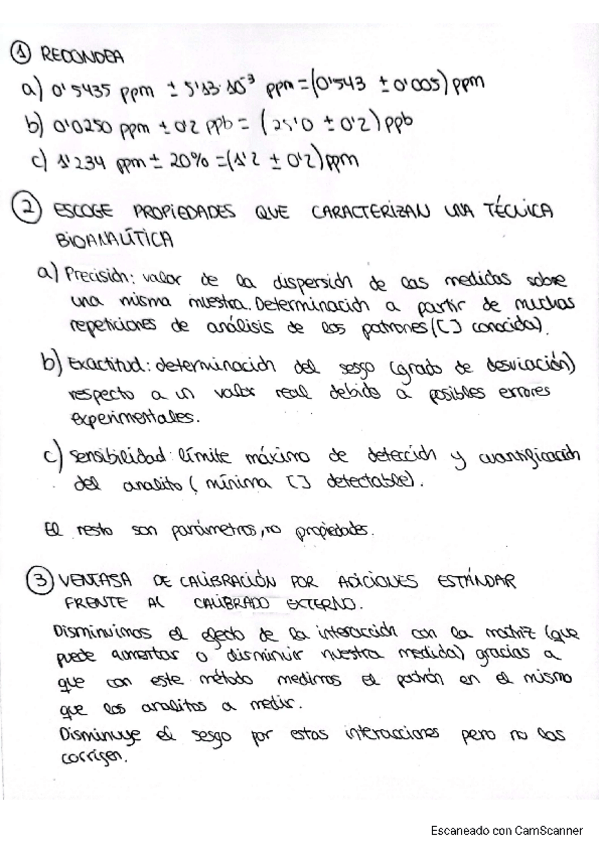 ① REDONDEA
a) 0'5435 ppm ± 5'13·10⁻³ ppm = (0'543 ± 0'005) ppm
b) 0'0250 ppm ± 0'2 ppb = (25'0 ± 0'2) ppb
c) 1'234 ppm ± 20% = (1'2 ± 0'2) ppm
② ESCOGE PROPIEDADES QUE CARACTERIZAN UNA TÉCNICA
BIOANALÍTICA
a) Precisión: valor de la dispersión de las medidas sobre
una misma muestra. Determinación a partir de muchas
repeticiones de análisis de los patrones ([ ] conocida).
b) Exactitud: determinación del sesgo (grado de desviación)
respecto a un valor real debido a posibles errores
experimentales.
c) Sensibilidad: límite máximo de detección y cuantificación
del analito ( mínima [ ] detectable).
El resto son parámetros, no propiedades.
③ VENTAJA DE CALIBRACIÓN POR ADICIONES ESTÁNDAR
FRENTE AL CALIBRADO EXTERNO.
Disminuimos el efecto de la interacción con la matriz (que
puede aumentar o disminuir nuestra medida) gracias a
que con este método medimos el patrón en el mismo
que los analitos a medir.
Disminuye el sesgo por estas interacciones pero no las
corrigen.
Escaneado con CamScanner